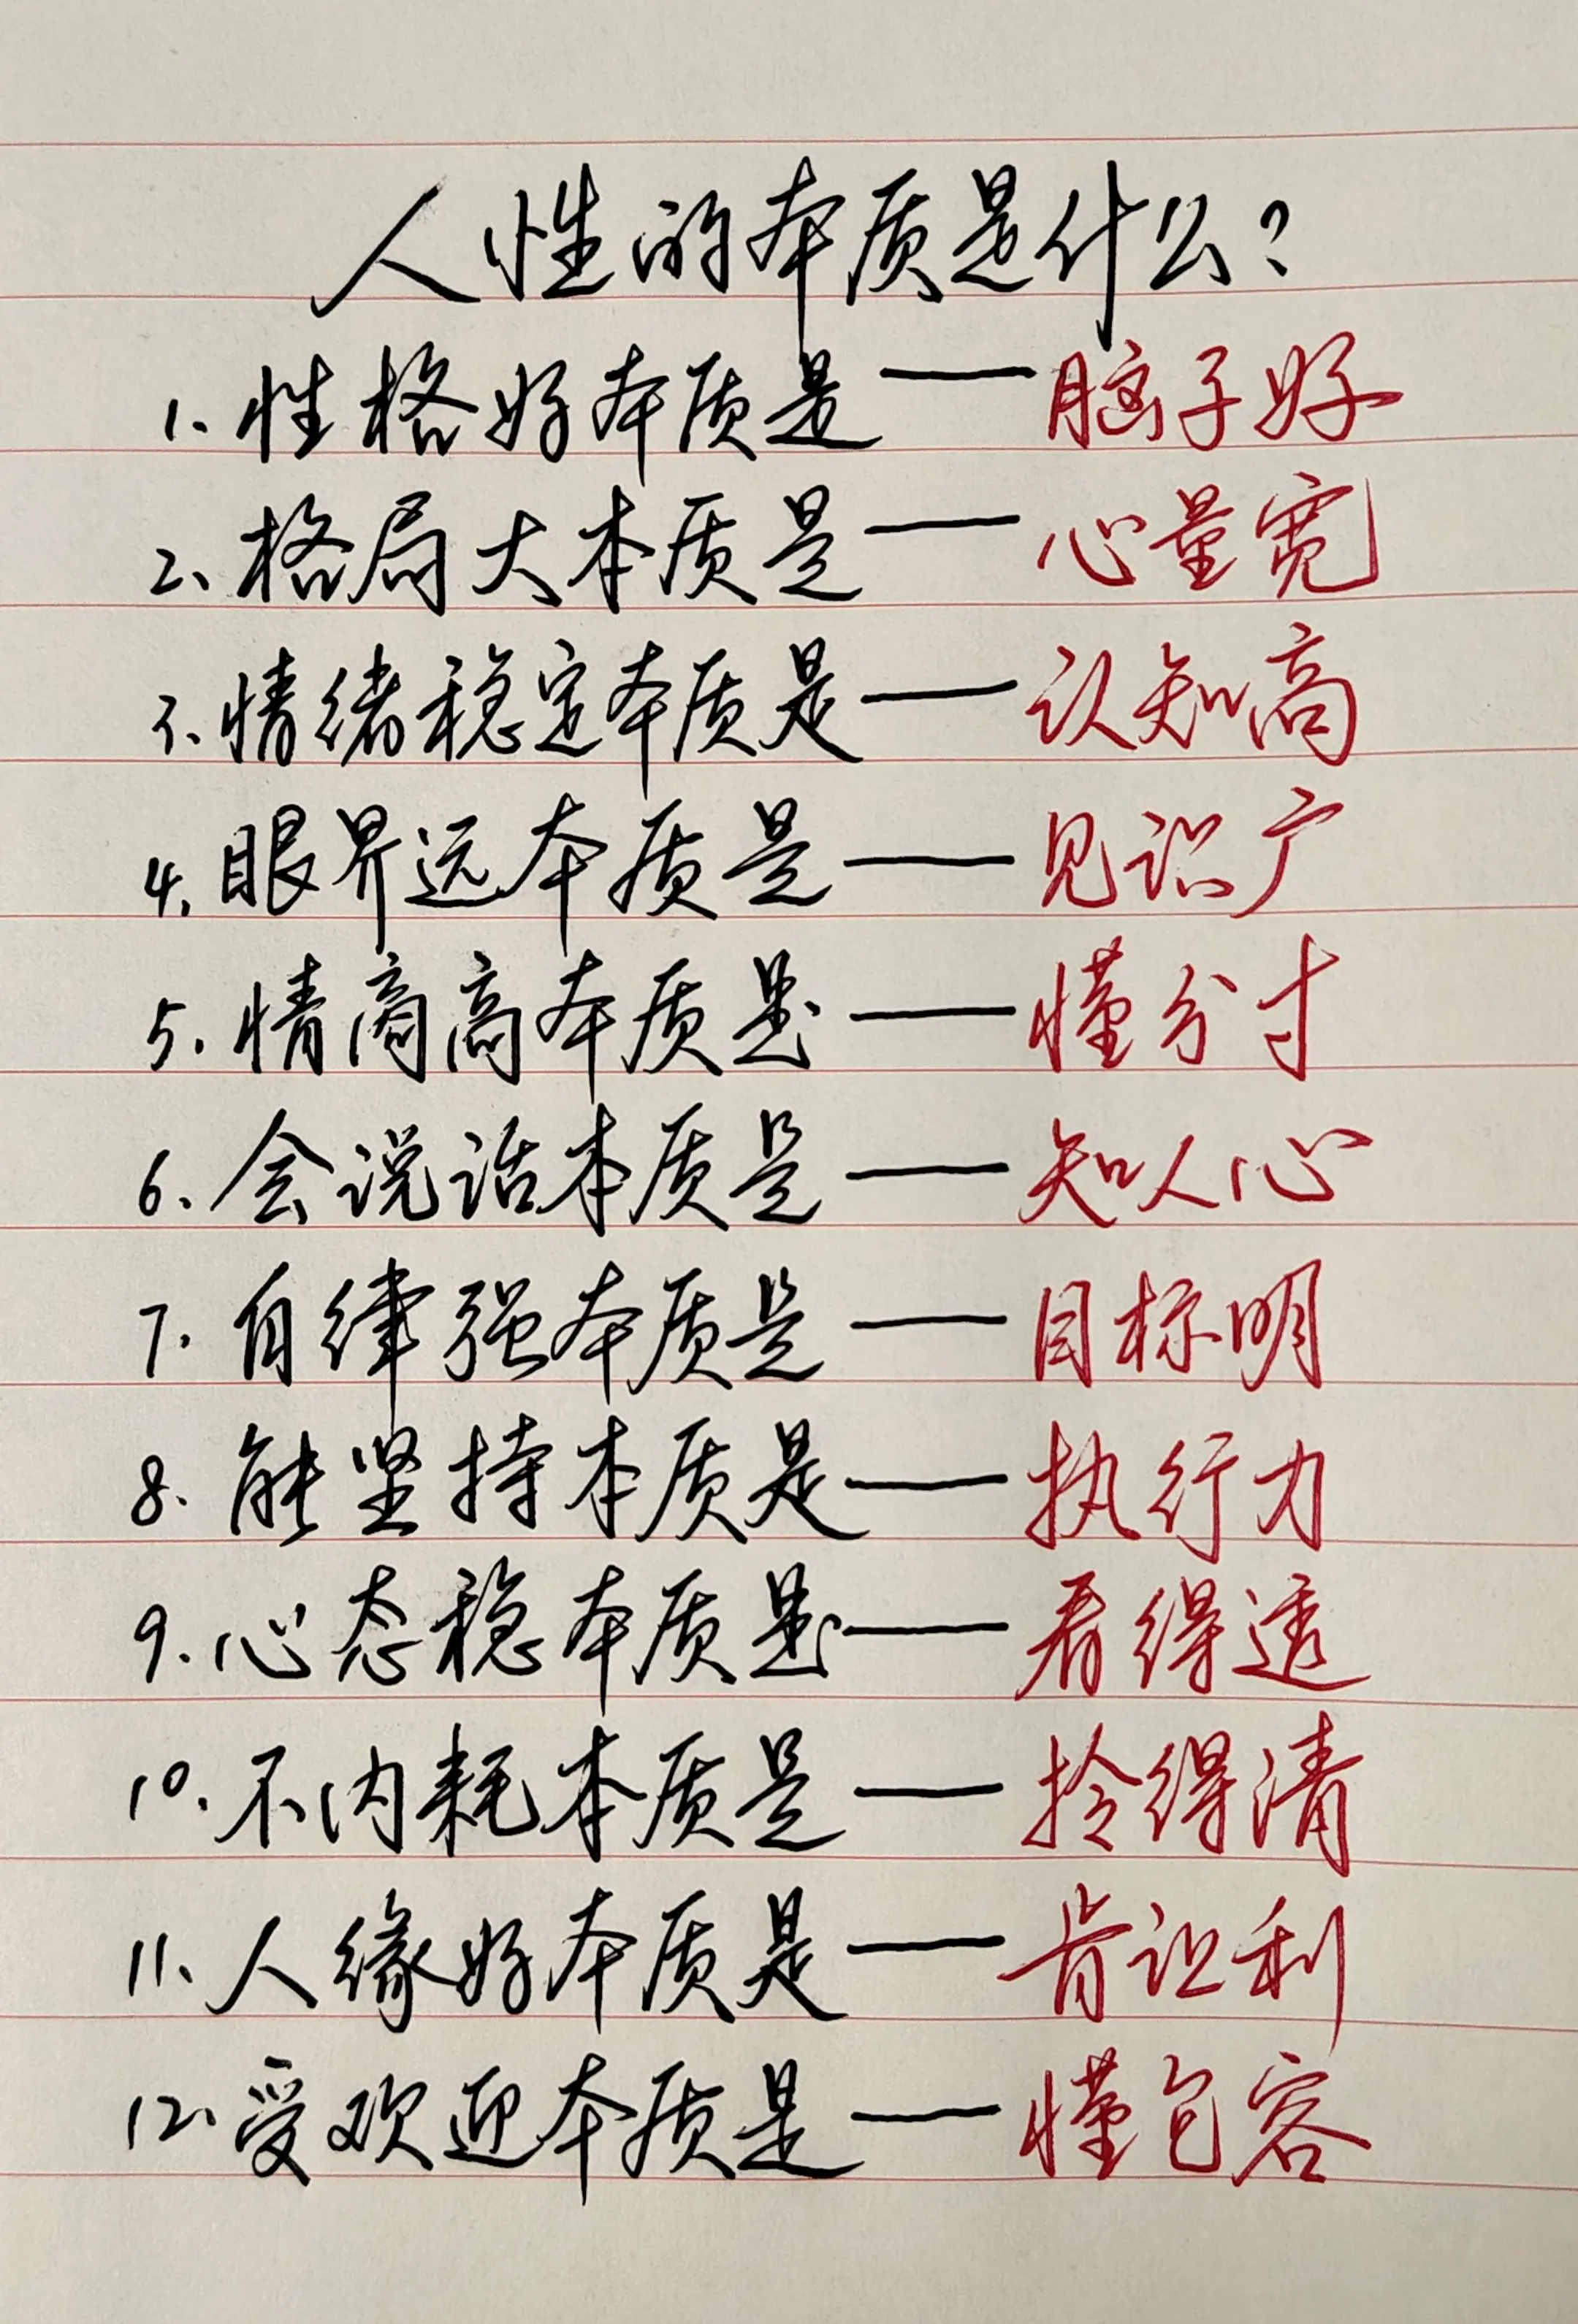 人性的本质是什么?
1.性格好本质是——脑子好
2、格局大本质是——心量宽
3.情绪稳定本质是——认知高
4.眼界远本质是——见识广
5.情商高本质是——懂分寸
6.会说话本质是——知人心
7.自律强本质是——目标明
8.能坚持本质是——执行力
9.心态稳本质是——看得透
10.不内耗本质是——拎得清
11、人缘好本质是——肯让利
12.受欢迎本质是——懂包容